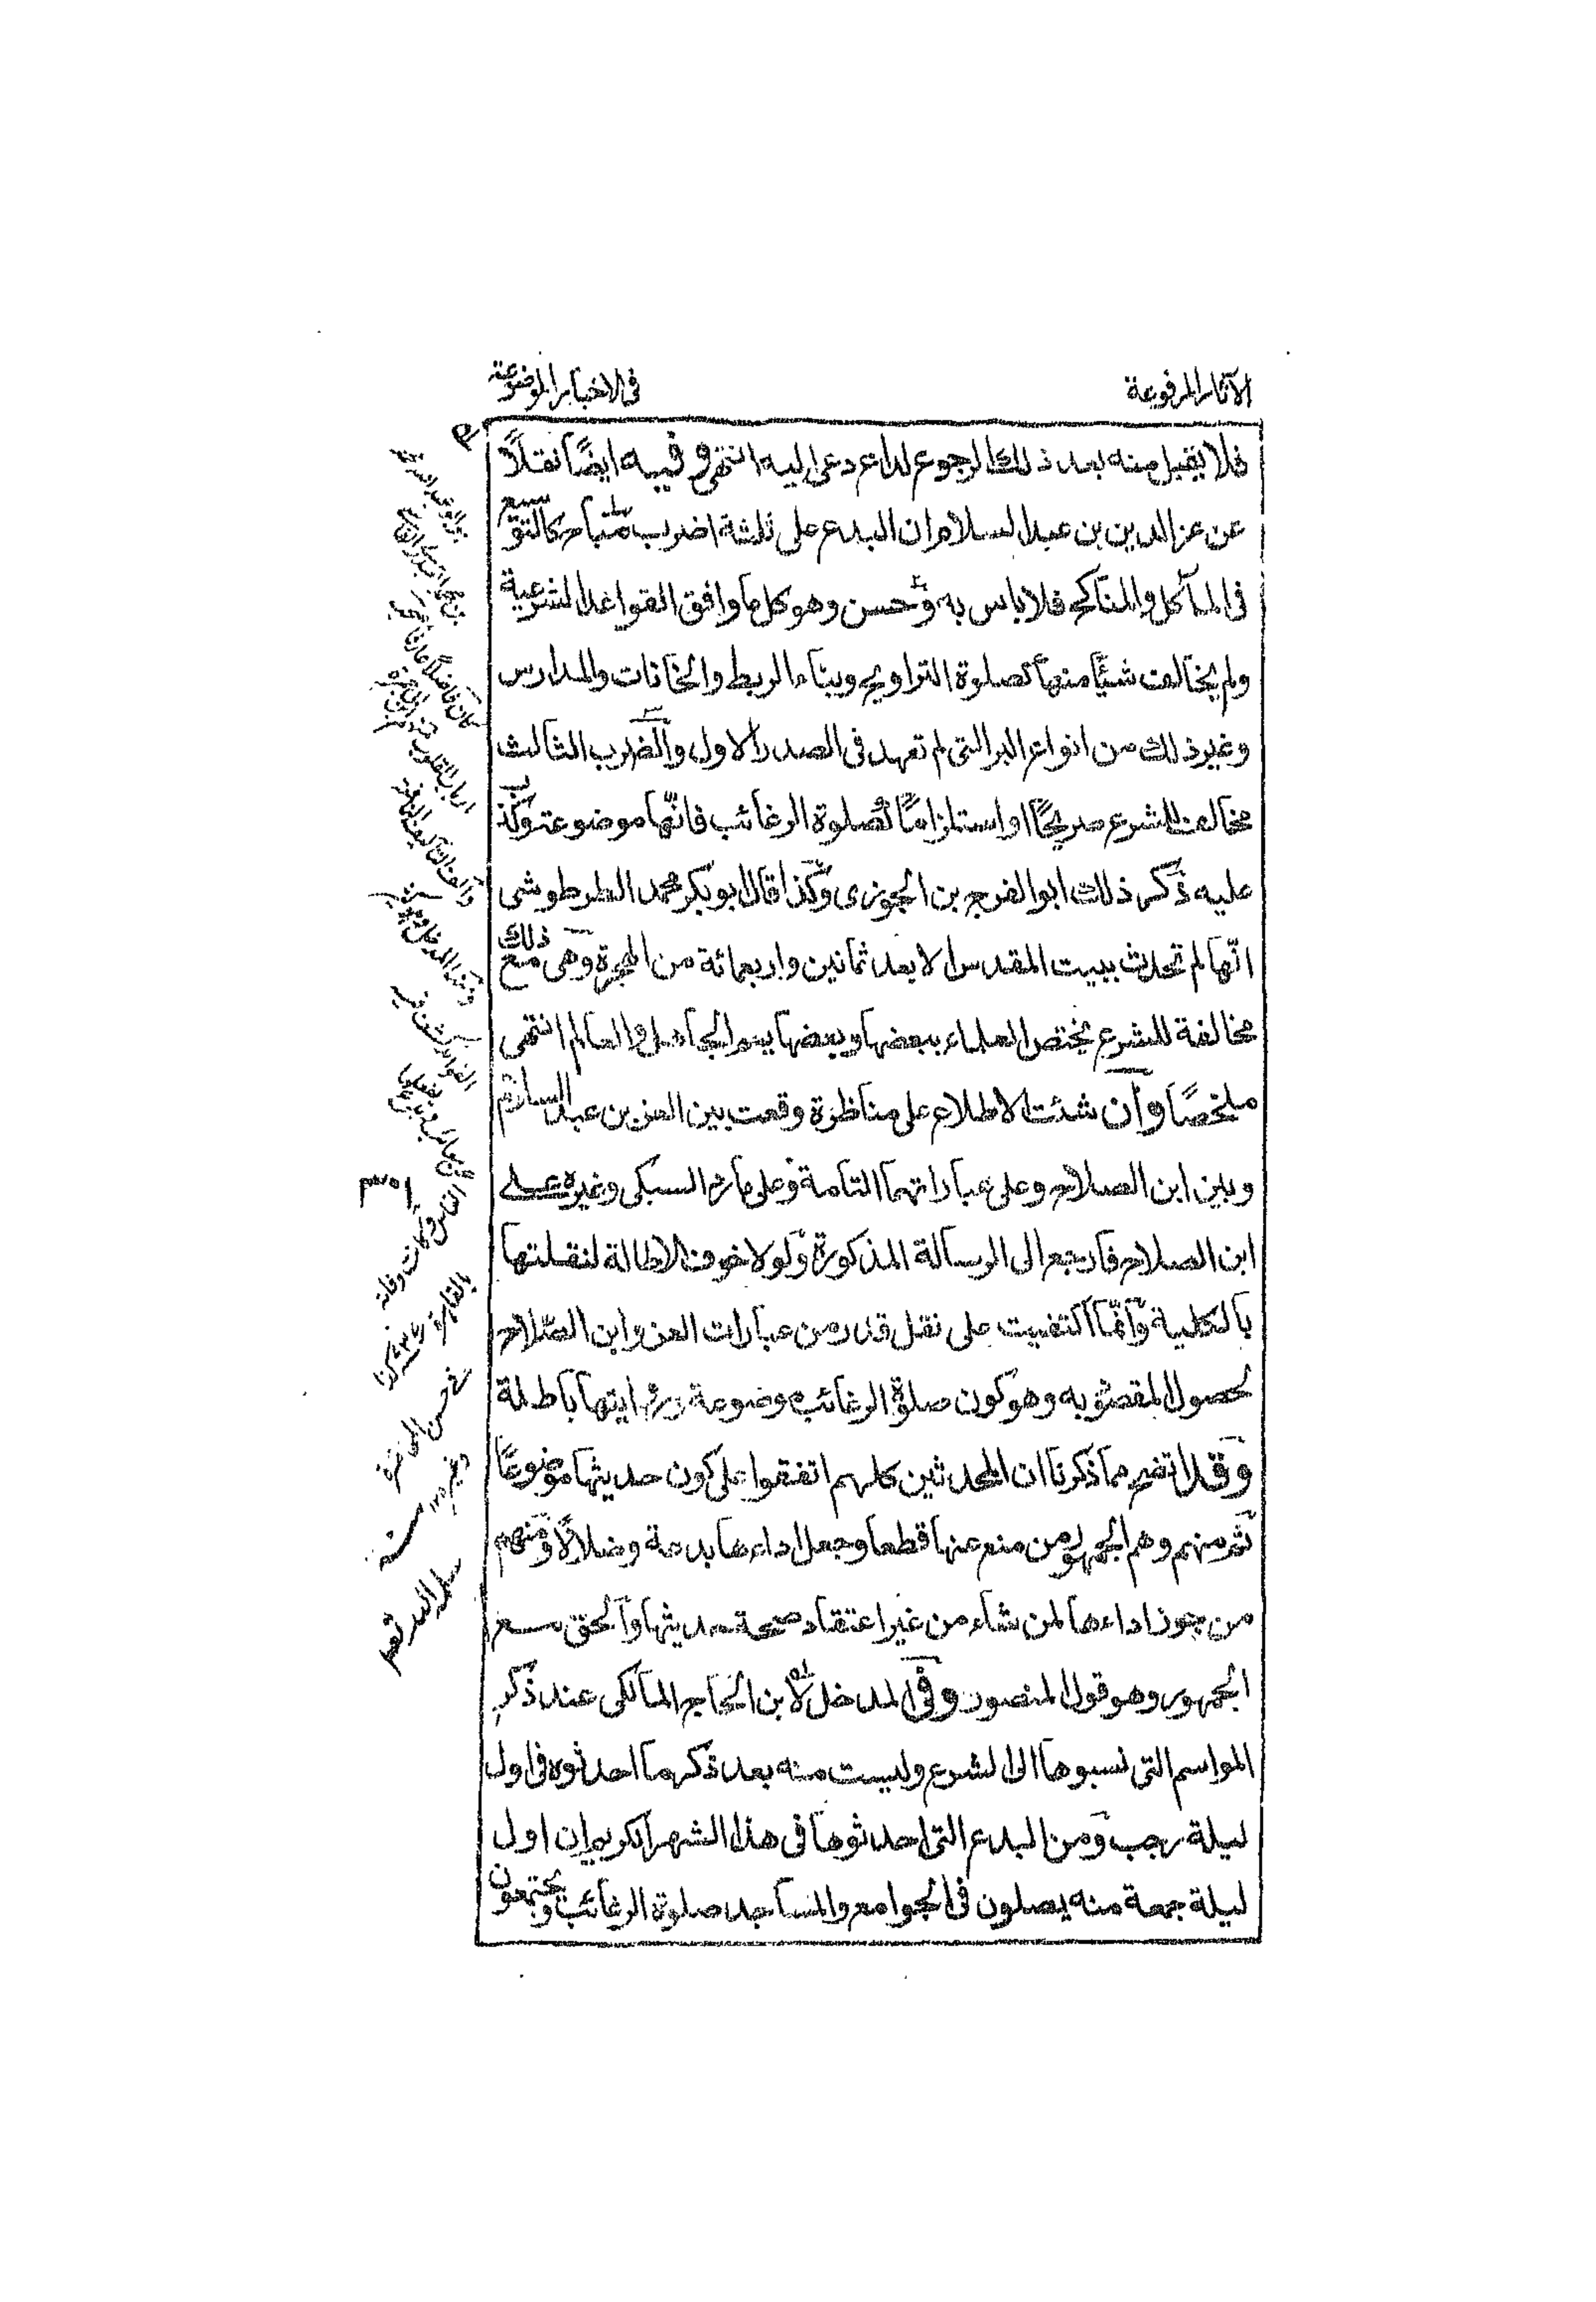 الآثار المرفوعة
فى الاخبار الموضوعة
فلا يقبل منه بعد ذلك الرجوع لداع دعى اليه انتهى وفيه ايضًا نقلاً
عن عز الدين بن عبد السلام ان البدع على ثلثة اضرب مباح كالتوسع
فى المآكل والمناكح فلا باس به وحسن وهو كل ما وافق القواعد الشرعية
ولم يخالف شيئًا منها كصلوة التراويح وبناء الربط والخانات والمدارس
وغير ذلك من انواع البر التى لم تعهد فى الصدر الاول والضرب الثالث
مخالف للشرع صريحًا او استلزامًا كصلوة الرغائب فانّها موضوعة وكذب
عليه ذكر ذلك ابو الفرج بن الجوزى وكذا قال ابو بكر محمد الطرطوشى
انّها لم تحدث ببيت المقدس الا بعد ثمانين واربعمائة من الهجرة وهى مع ذلك
مخالفة للشرع يختص العلماء ببعضها وبعضها يعم الجاهل والعالم انتهى
ملخصًا وان شئت الاطلاع على مناظرة وقعت بين العز بن عبد السلام
وبين ابن الصلاح وعلى عباراتهما التامة وعلى ما رد السبكى وغيره على
ابن الصلاح فارجع الى الرسالة المذكورة ولو لا خوف الاطالة لنقلتها
بالكلية وانّما اكتفيت على نقل قدر من عبارات العز وابن الصّلاح
لحصول المقصود به وهو كون صلوة الرغائب موضوعة وروايتها باطلة
وقد اتضح مما ذكرنا ان المحدثين كلهم اتفقوا على كون حديثها موضوعًا
ثم منهم وهم الجمهور من منع عنها قطعا وجعل اداءها بدعة وضلالًا ومنهم
من جوز اداءها لمن شاء من غير اعتقاد صحة حديثها والحق مع
الجمهور وهو قول المنصور وفى المدخل لابن الحاج المالكى عند ذكر
المواسم التى نسبوها الى الشرع وليست منه بعد ذكر ما احدثوه فى اول
ليلة رجب ومن البدع التى احدثوها فى هذا الشهر الكريم ان اول
ليلة جمعة منه يصلون فى الجوامع والمساجد صلوة الرغائب ويجتمعون
كان فاضلا عارفا
ارباب القلوب
الناس وكانت وفاته
بالقاهرة
فى حسن المحاضرة
وغيره ١٢ منه
سلمه الله تعم